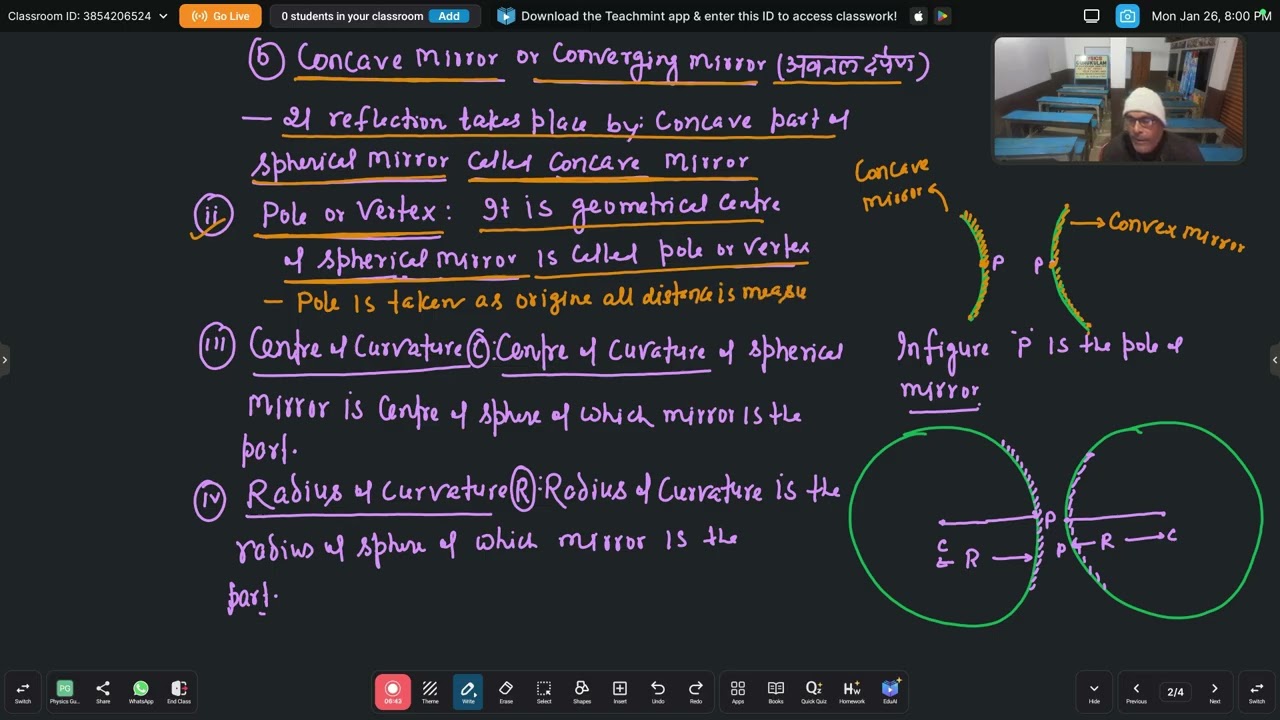 Classroom ID: 3854206524
Go Live
0 students in your classroom Add
Download the Teachmint app & enter this ID to access classwork!
Mon Jan 26, 8:00 PM
(b) Concave mirror or Converging mirror (अवतल दर्पण)
— If reflection takes place by: Concave part of
spherical mirror called concave mirror
(ii) Pole or Vertex: It is geometrical centre
of spherical mirror is called pole or vertex
— Pole is taken as origine all distance is measu
(iii) Centre of Curvature (C): Centre of Curvature of spherical
mirror is centre of sphere of which mirror is the
part.
(iv) Radius of curvature (R): Radius of Curvature is the
radius of sphere of which mirror is the
part.
Concave
mirror
Convex mirror
P
P
In figure 'P' is the pole of
mirror.
P
C
R
P
R
C
Switch
Physics Gu...
Share
WhatsApp
End Class
06:43
Theme
Write
Erase
Select
Shapes
Insert
Undo
Redo
Apps
Books
Quick Quiz
Homework
EduAI
Hide
Previous
2/4
Next
Switch